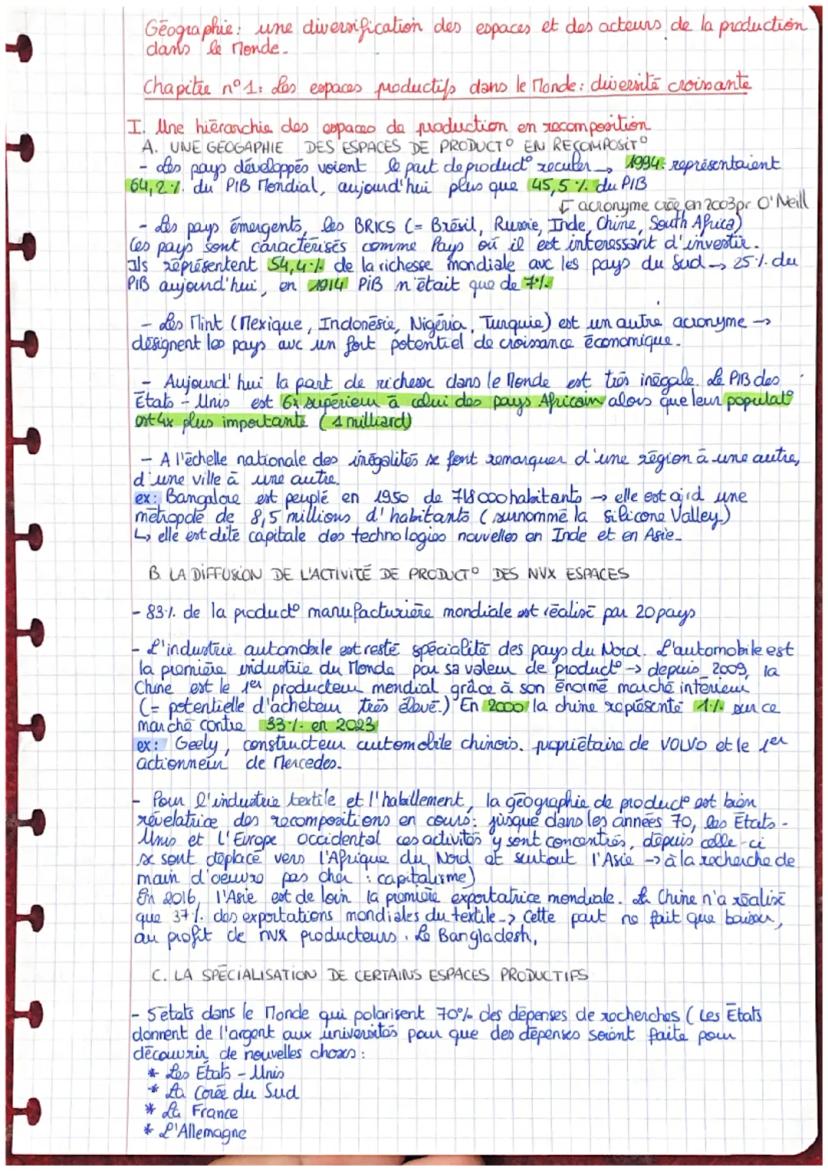 Géographie: une diversification des espaces et des acteurs de la production
dans le Monde.
Chapitre n°1: Les espaces productifs dans le Monde: diversité croissante
I. Une hiérarchie des espaces de production en recomposition
A. UNE GÉOGAPHIE DES ESPACES DE PRODUCT° EN RECOMPOSIT°
- Les pays développés voient le part de product° reculer → 1994: représentaient
64,2% du PIB Mondial, aujourd'hui plus que 45,5% du PIB
acronyme crée en 2003 pr O'Neill
- Les pays émergents, les BRICS (= Brésil, Russie, Inde, Chine, South Africa)
Ces pays sont caractérisés comme Pays où il est interessant d'investir.
Ils représentent 54,4% de la richesse mondiale avc les pays du Sud → 25% du
PiB aujourd'hui, en 1914 PiB n'était que de 7%
- Les Mint (Mexique, Indonésie, Nigéria, Turquie) est un autre acronyme →
désignent les pays avc un fort potentiel de croissance économique.
- Aujourd'hui la part de richesse dans le Monde est très inégale. Le PIB des
États-Unis est 6x supérieur à celui des pays Africain alors que leur populat°
est 4x plus importante (1 milliard)
- A l'échelle nationale des inégalités se font remarquer d'une région à une autre,
d'une ville à une autre.
ex: Bangalore est peuplé en 1950 de 718 000 habitants → elle est ajrd une
métropole de 8,5 millions d'habitants (surnommé la Silicone Valley)
↳ elle est dite capitale des technologies nouvelles en Inde et en Asie.
B. LA DIFFUSION DE L'ACTIVITÉ DE PRODUCT° DES NVX ESPACES
- 83% de la product° manufacturière mondiale est réalisé par 20 pays
- L'industrie automobile est resté spécialité des pays du Nord. L'automobile est
la première industrie du Monde par sa valeur de product° → depuis 2009, la
Chine est le 1er producteur mondial grâce à son énorme marché intérieur
(= potentielle d'acheteur très élevé.) En 2000 la chine représenté 1% sur ce
marché contre 33% en 2023
ex: Geely, constructeur automobile chinois. propriétaire de VOLVO et le 1er
actionneur de Mercedes.
- Pour l'industrie textile et l'habillement, la géographie de product° est bien
révélatrice des recompositions en cours: jusque dans les années 70, les États-
Unis et l'Europe occidental ces activités y sont concentrés, depuis celle-ci
se sont déplacé vers l'Afrique du Nord et surtout l'Asie → à la recherche de
main d'oeuvre pas cher : capitalisme)
En 2016, l'Asie est de loin la première exportatrice mondiale. La Chine n'a réalisé
que 37% des exportations mondiales du textile → Cette part ne fait que baisser,
au profit de nvx producteurs. Le Bangladesh,
C. LA SPÉCIALISATION DE CERTAINS ESPACES PRODUCTIFS
- 5 états dans le Monde qui polarisent 70% des dépenses de recherches (Les États
donnent de l'argent aux universités pour que des dépenses seront faite pour
découvrir de nouvelles choses :
* Les États-Unis
* La Corée du Sud
* La France
* L'Allemagne